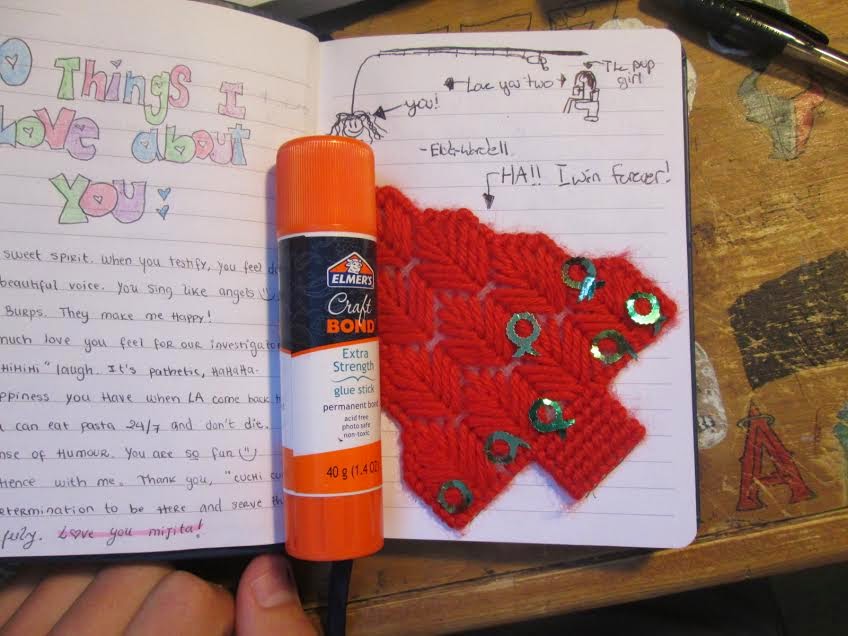 O Things I
LOVE about
YOU:
sweet spirit. when you testify, you feel
beautiful voice. you sing like angels
Burps. They make me Happy!
much love you feel for our investigato
HiHiHi" laugh. It's pathetic, HaHaHa.
ppiness you have when LA come back
can eat pasta 24/7 and don't die.
nse of Humour. You are so fun
tience with me. Thank you, "cuchi
etermination to be Here and serve
Love you mijita!
you!
Love you two
The pup
girl
HA!! I win forever!
ELMER'S
Craft
BOND
Extra
Strength
glue stick
permanent bond
acid free
photo safe
non-toxic
40 g (1.4 OZ
A